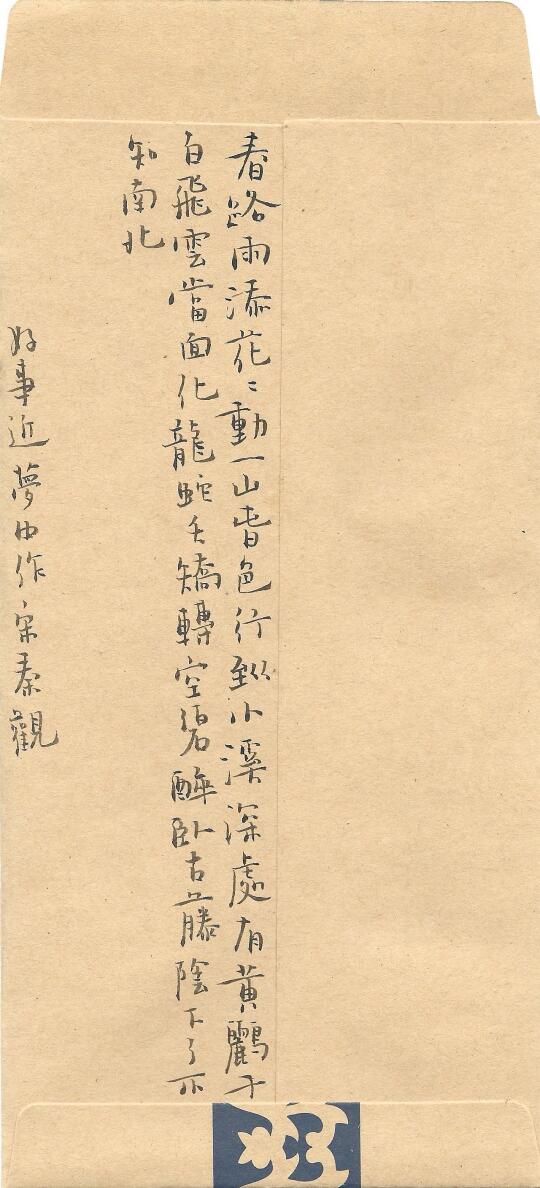 春路雨添花〻動一山春色行到小溪深處有黃鸝千
百飛雲當面化龍蛇夭矯轉空碧醉臥古藤陰下了不
知南北
好事近夢中作宋秦觀